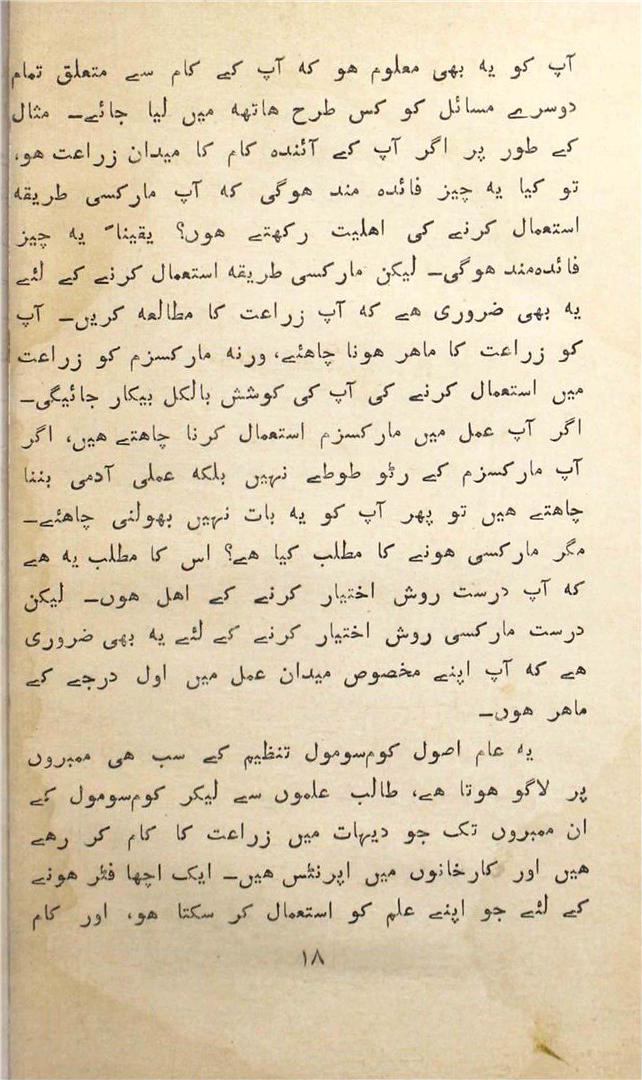 آپ کو یہ بھی معلوم ہو کہ آپ کے کام سے متعلق تمام
دوسرے مسائل کو کس طرح ہاتھہ میں لیا جائے۔ مثال
کے طور پر اگر آپ کے آئندہ کام کا میدان زراعت ہو،
تو کیا یہ چیز فائدہ مند ہوگی کہ آپ مارکسی طریقہ
استعمال کرنے کی اہلیت رکھتے ہوں؟ یقیناً یہ چیز
فائدہمند ہوگی۔ لیکن مارکسی طریقہ استعمال کرنے کے لئے
یہ بھی ضروری ہے کہ آپ زراعت کا مطالعہ کریں۔ آپ
کو زراعت کا ماہر ہونا چاہئیے، ورنہ مارکسزم کو زراعت
میں استعمال کرنے کی آپ کی کوشش بالکل بیکار جائیگی۔
اگر آپ عمل میں مارکسزم استعمال کرنا چاہتے ہیں، اگر
آپ مارکسزم کے رٹو طوطے نہیں بلکہ عملی آدمی بننا
چاہتے ہیں تو پھر آپ کو یہ بات نہیں بھولنی چاہئے۔
مگر مارکسی ہونے کا مطلب کیا ہے؟ اس کا مطلب یہ ہے
کہ آپ درست روش اختیار کرنے کے اہل ہوں۔ لیکن
درست مارکسی روش اختیار کرنے کے لئے یہ بھی ضروری
ہے کہ آپ اپنے مخصوص میدان عمل میں اول درجے کے
ماہر ہوں۔
یہ عام اصول کومسومول تنظیم کے سب ہی ممبروں
پر لاگو ہوتا ہے، طالب علموں سے لیکر کومسومول کے
ان ممبروں تک جو دیہات میں زراعت کا کام کر رہے
ہیں اور کارخانوں میں اپرنٹس ہیں۔ ایک اچھا فٹر ہونے
کے لئے جو اپنے علم کو استعمال کر سکتا ہو، اور کام
۱۸